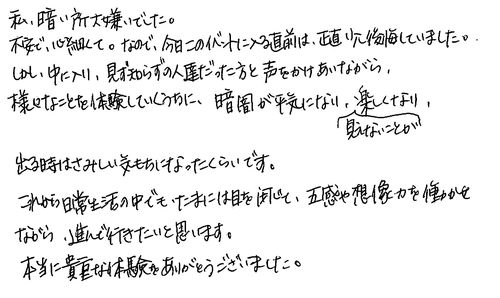 私、暗い所大嫌いでした。
不安で、心細くて。なので、今日このイベントに入る直前は、正直少し後悔していました。
しかし、中に入り、見ず知らずの人達だった方と声をかけあいながら、
様々なことを体験していくうちに、暗闇が平気になり、楽しくなり、
見えないことが
出る時はさみしい気もちになったくらいです。
これから日常生活の中でもたまには目を閉じて、五感や想像力を働かせ
ながら、進んで行きたいと思います。
本当に貴重な体験をありがとうございました。